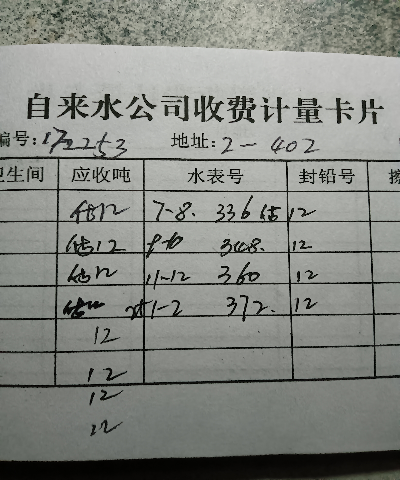 自来水公司收费计量卡片
编号:172253 地址:2-402
卫生间 应收吨 水表号 封铅号
估12 7-8. 336估 12
估12 9-10 348. 12
估12 11-12 360 12
1-2 372. 12
12
12
12
12